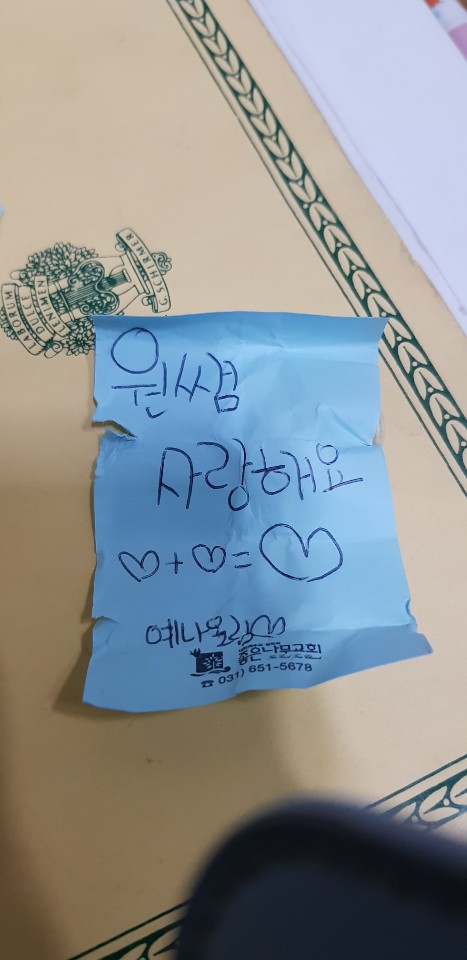 C. SCHIRMER
LABORUM DULCE LENIMEN
원쌤
사랑해요
♡+♡=♡
예나올림♡
좋은나무교회
☎ 031) 651-5678